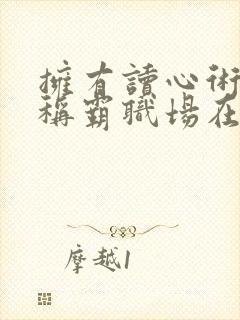 擁有讀心術
稱霸職場在
摩越1